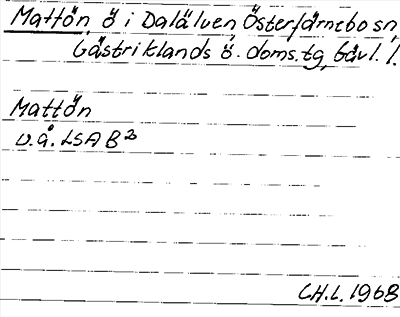 Mattön, ö i Dalälven, Österfärnebo sn,
Gästriklands ö. doms.tg, Gävl. l.
Mattön
v.å. LSA B²
CH.L. 1968